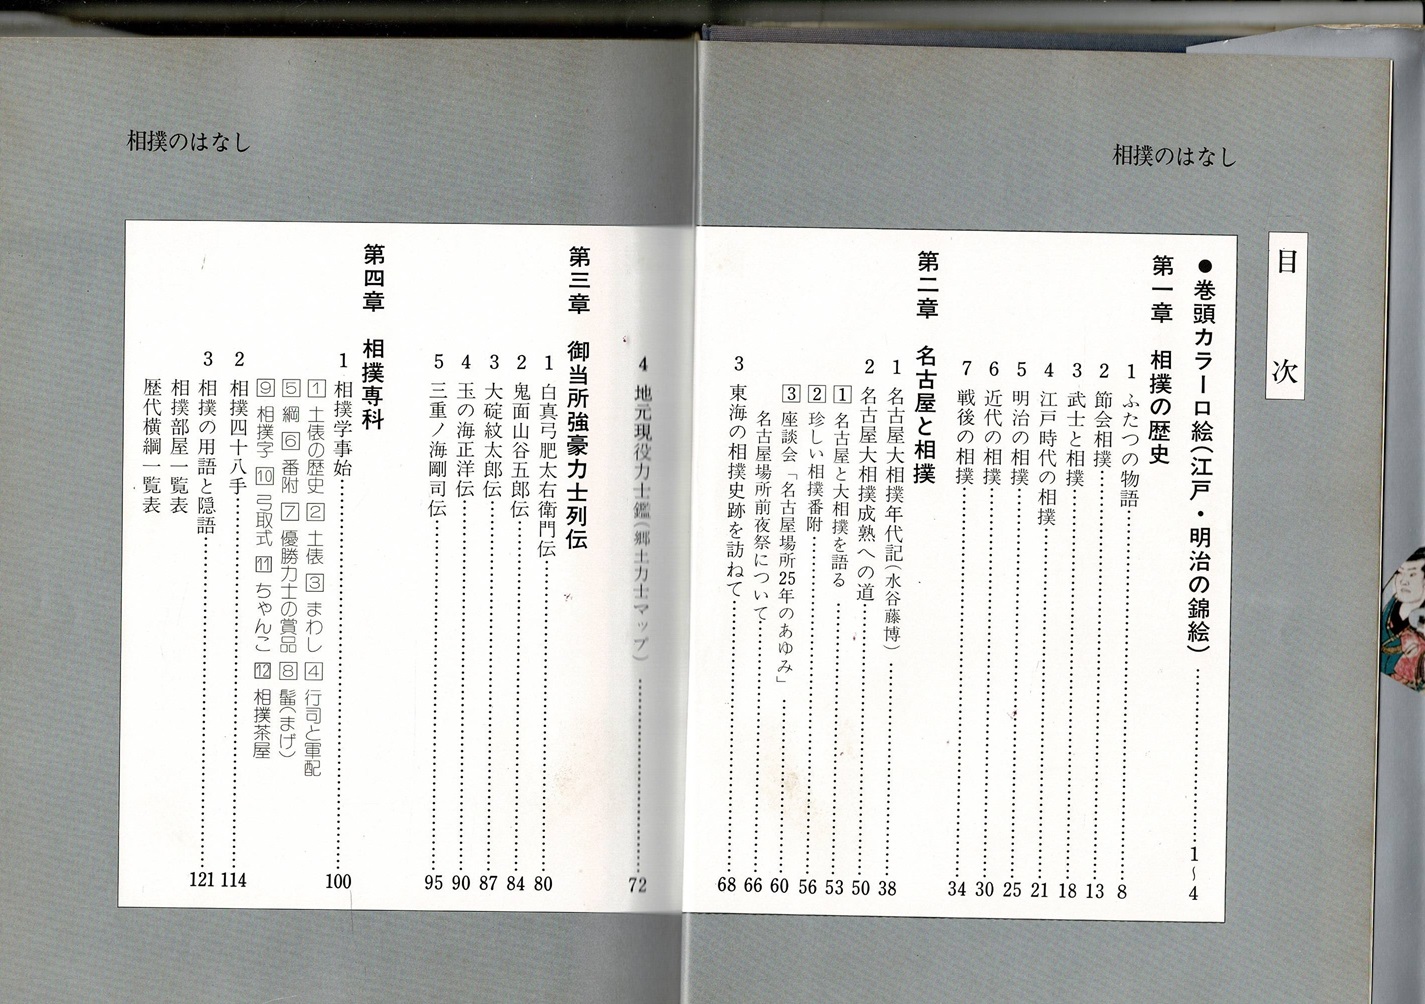 相撲のはなし
目次
●巻頭カラー口絵(江戸・明治の錦絵)……1〜4
第一章 相撲の歴史
1 ふたつの物語……8
2 節会相撲……13
3 武士と相撲……18
4 江戸時代の相撲……21
5 明治の相撲……25
6 近代の相撲……30
7 戦後の相撲……34
第二章 名古屋と相撲
1 名古屋大相撲年代記(水谷藤博)……38
2 名古屋大相撲成熟への道……50
1 名古屋と大相撲を語る……53
2 珍しい相撲番附……56
3 座談会「名古屋場所25年のあゆみ」……60
名古屋場所前夜祭について……66
3 東海の相撲史跡を訪ねて……68
相撲のはなし
4 地元現役力士鑑(郷土力士マップ)……72
第三章 御当所強豪力士列伝
1 白真弓肥太右衛門伝……80
2 鬼面山谷五郎伝……84
3 大碇紋太郎伝……87
4 玉の海正洋伝……90
5 三重ノ海剛司伝……95
第四章 相撲専科
1 相撲学事始……100
1 土俵の歴史 2 土俵 3 まわし 4 行司と軍配
5 綱 6 番附 7 優勝力士の賞品 8 髷(まげ)
9 相撲字 10 弓取式 11 ちゃんこ 12 相撲茶屋
2 相撲四十八手……114
3 相撲の用語と隠語……121
相撲部屋一覧表
歴代横綱一覧表